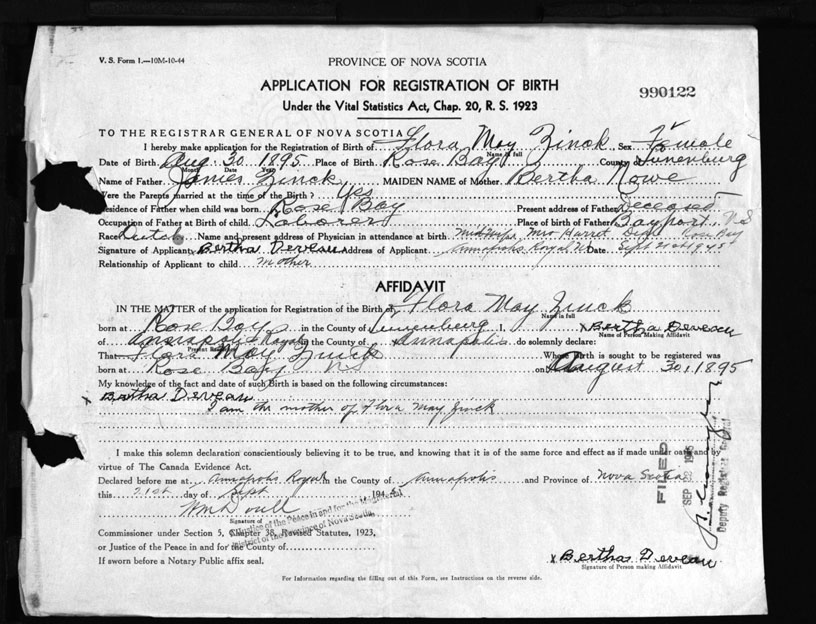 V. S. Form 1.—10M-10-44
PROVINCE OF NOVA SCOTIA
APPLICATION FOR REGISTRATION OF BIRTH
990122
Under the Vital Statistics Act, Chap. 20, R. S. 1923
TO THE REGISTRAR GENERAL OF NOVA SCOTIA
I hereby make application for the Registration of Birth of Flora May Zinck Sex Female
Name in full
Date of Birth Aug 30 1895 Place of Birth Rose Bay County of Lunenburg
Month Date Year
Name of Father James Zinck MAIDEN NAME of Mother Bertha Rowe
Were the Parents married at the time of the Birth? Yes
Residence of Father when child was born Rose Bay Present address of Father Deceased
Occupation of Father at Birth of child Laborer Place of birth of Father Bayport, N S
Race Dutch Name and present address of Physician in attendance at birth Midwife Mrs Rose Bay
Signature of Applicant Bertha Deveau Address of Applicant Annapolis Royal N.S. Date Sept 21st 1945
Relationship of Applicant to child mother
AFFIDAVIT
IN THE MATTER of the application for Registration of the Birth of Flora May Zinck
Name in full
born at Rose Bay in the County of Lunenburg I, x Bertha Deveau
Name of Person Making Affidavit
of Annapolis Royal in the County of Annapolis do solemnly declare:
Present Residence
That Flora May Zinck Whose Birth is sought to be registered was
born at Rose Bay N S on August 30, 1895
My knowledge of the fact and date of such Birth is based on the following circumstances:
x Bertha Deveau
I am the mother of Flora May Zinck
I make this solemn declaration conscientiously believing it to be true, and knowing that it is of the same force and effect as if made under oath and by
virtue of The Canada Evidence Act.
Declared before me at Annapolis Royal in the County of Annapolis and Province of Nova Scotia
this 21st day of Sept 194
Signature of
A Justice of the Peace in and for the
District of the Province of Nova Scotia.
Commissioner under Section 5, Chapter 38, Revised Statutes, 1923,
or Justice of the Peace in and for the County of
If sworn before a Notary Public affix seal.
x Bertha Deveau
Signature of Person making Affidavit
For Information regarding the filling out of this Form, see Instructions on the reverse side.
FILED
SEP
Deputy Registrar